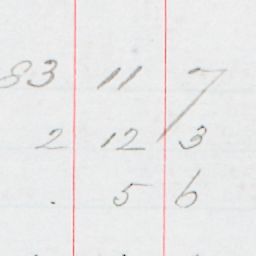 83 11 7
2 12 3
. 5 6